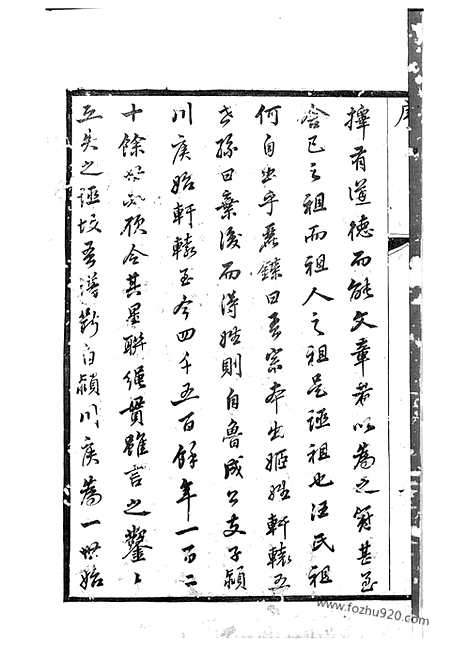 序
擇有道德而能文章者以為之冠甚至
舍已之祖而祖人之祖是誣祖也汪氏祖
何自出乎舊錄曰吾宗本出姬姓軒轅五
世孫曰棄後而得姓則自魯成公支子潁
川侯始軒轅至今四千五百餘年一百二
十餘世必欲令其星聯繩貫雖言之鑿〻
亦失之誣故吾譜斷自潁川侯為一世始
www.fozhu920.com